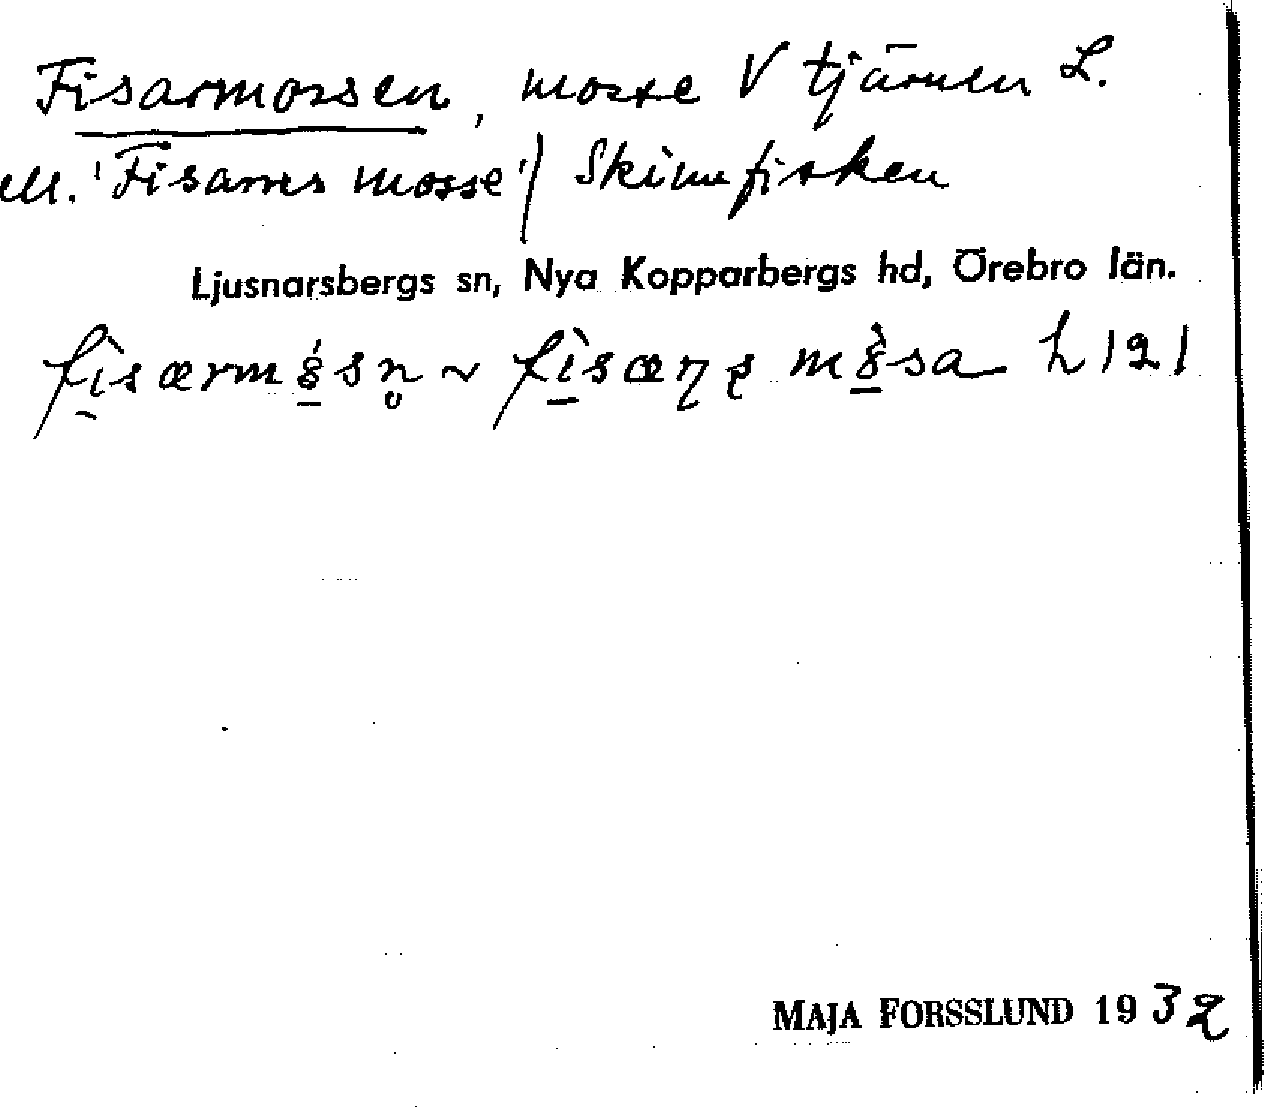 Fisarmossen, mosse V tjärnen L.
ell. 'Fisarns mosse') Skinnfisken
Ljusnarsbergs sn, Nya Kopparbergs hd, Örebro län.
h 121
MAJA FORSSLUND 1932